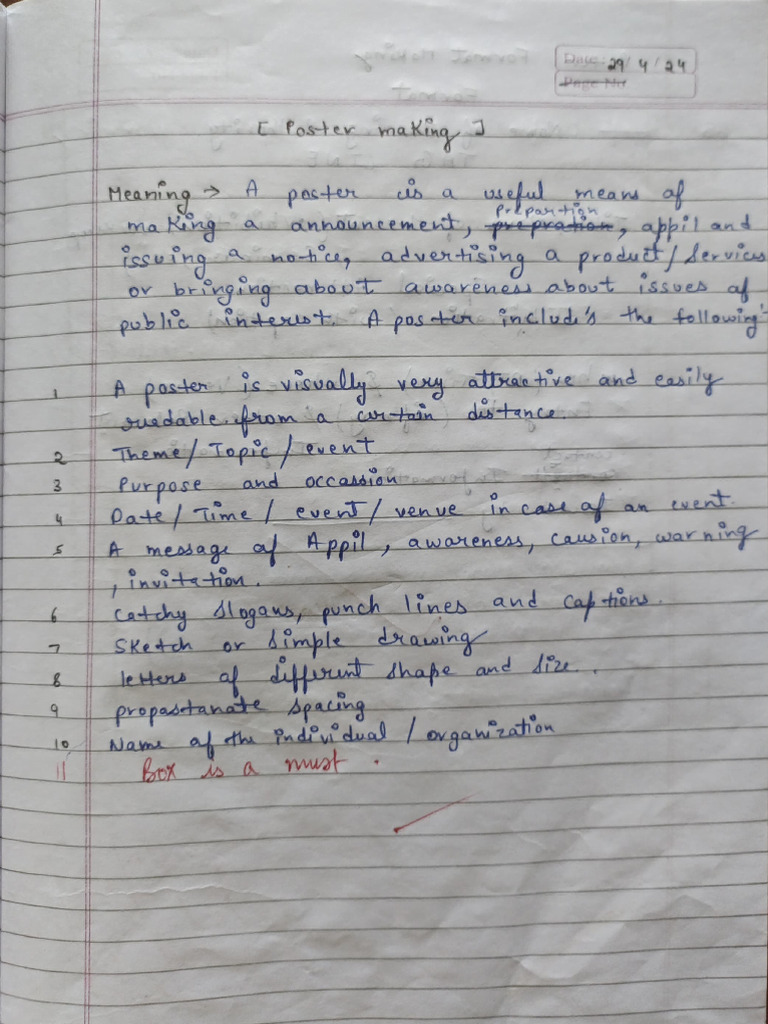 Date: 29/4/24
Page No
[ Poster making ]
Meaning → A poster is a useful means of
making a announcement, prepration, prepartion, appil and
issuing a notice, advertising a product/services
or bringing about awareness about issues of
public interest. A poster include's the following:
1 A poster is visually very attractive and easily
ruedable from a (certain) distance.
2 Theme/Topic/event
3 Purpose and occassion
4 Date/Time/event/venue in case of an event.
5 A message of Appil, awareness, causion, warning
, invitation.
6 Catchy slogans, punch lines and captions.
7 Sketch or simple drawing
8 letters of different shape and size.
9 propastanate spacing
10 Name of the individual / organization
11 Box is a must.